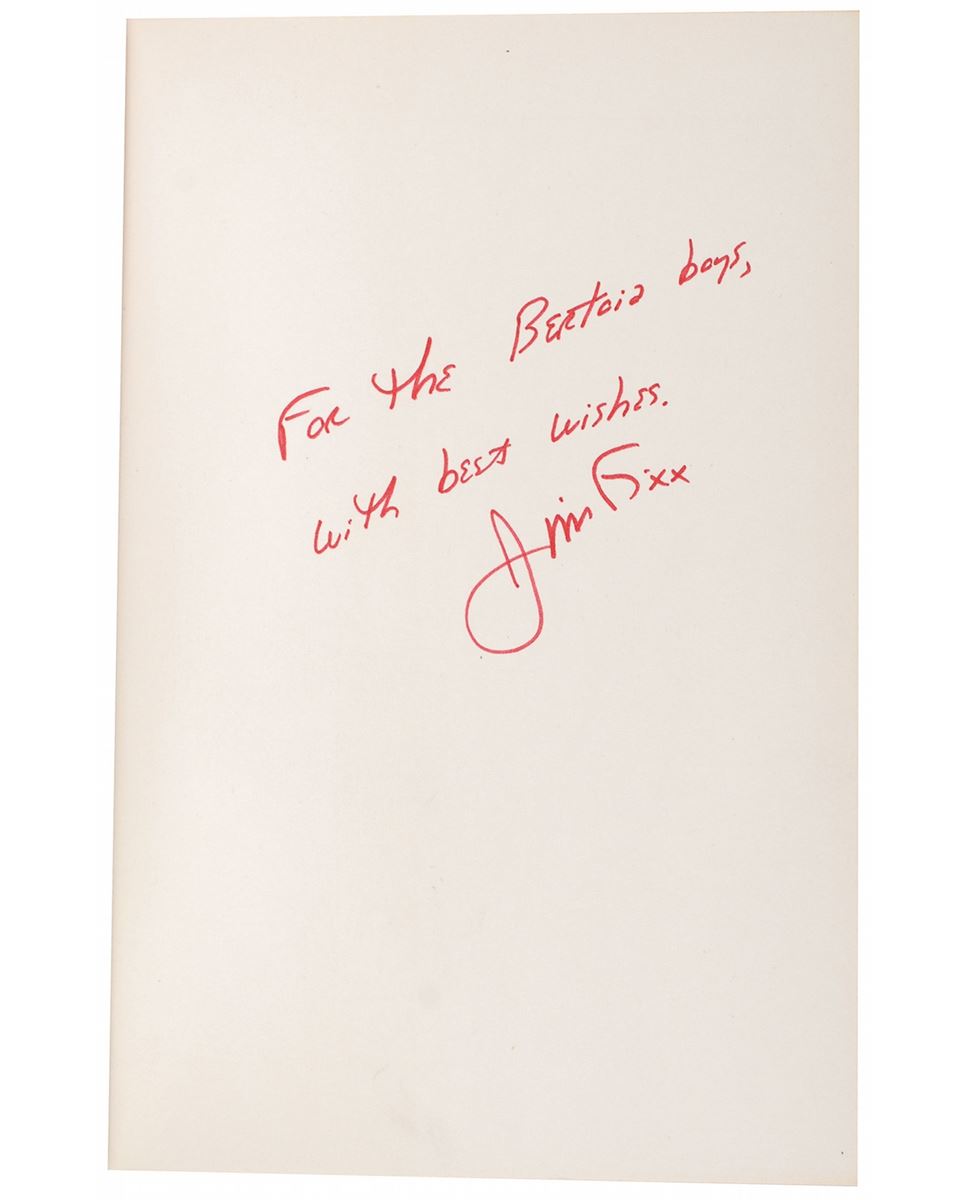 For the Bertoia boys,
with best wishes.
Jim Fixx